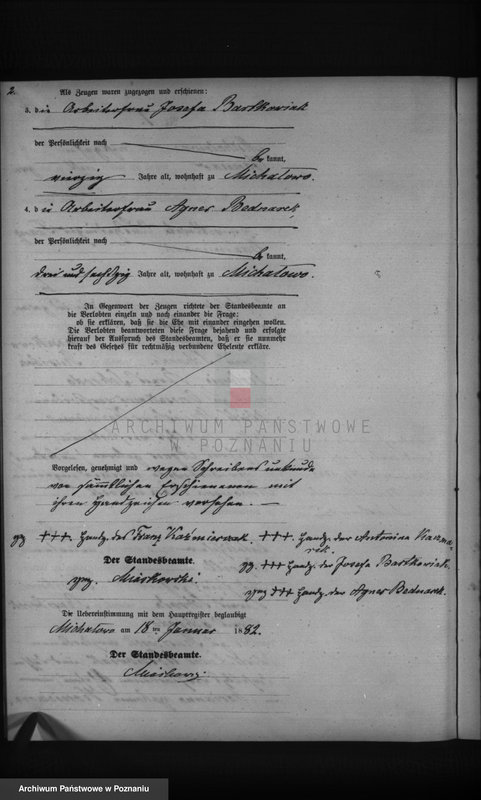 2.
Als Zeugen waren zugezogen und erschienen:
3. die Arbeiterfrau Josefa Bartkowiak
der Persönlichkeit nach
be kannt,
vierzig Jahre alt, wohnhaft zu Michalowo.
4. die Arbeiterfrau Agnes Bednarek
der Persönlichkeit nach
be kannt,
drei und sechszig Jahre alt, wohnhaft zu Michalowo.
In Gegenwart der Zeugen richtete der Standesbeamte an
die Verlobten einzeln und nach einander die Frage:
ob sie erklären, daß sie die Ehe mit einander eingehen wollen.
Die Verlobten beantworteten diese Frage bejahend und erfolgte
hierauf der Ausspruch des Standesbeamten, daß er sie nunmehr
kraft des Gesetzes für rechtmäßig verbundene Eheleute erkläre.
ARCHIWUM PAŃSTWOWE
W POZNANIU
Vorgelesen, genehmigt und wegen Schreibens unkunde
von sämmtlichen Erschienenen mit
ihren Handzeichen versehen. —
gz +++ Handz. des Franz Kaźmierczak +++ Handz. der Antonina Kaczma-
rek.
Der Standesbeamte.
gz. +++ Handz. der Josefa Bartkowiak.
gez. +++ Handz. der Agnes Bednarek.
Die Uebereinstimmung mit dem Hauptregister beglaubigt
Michalowo am 18 ten Januar 1882.
Der Standesbeamte.
Archiwum Państwowe w Poznaniu